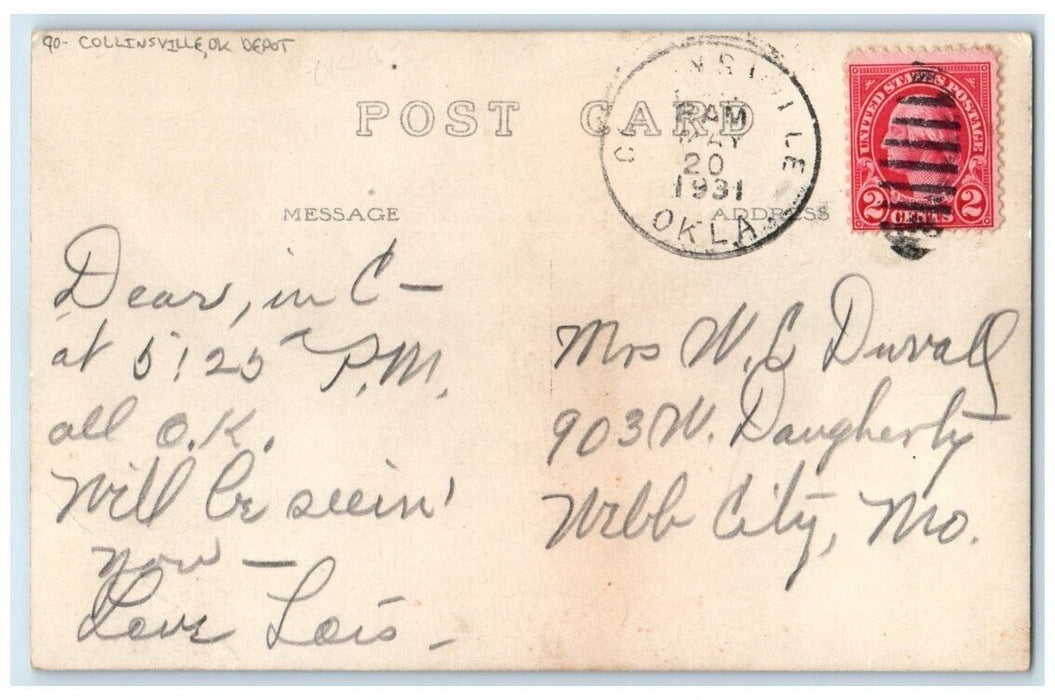 90- COLLINSVILLE, OK DEPOT
POST CARD
C NSVILLE
AM
MAY
20
1931
OKLA.
UNITED STATES POSTAGE
2 CENTS 2
MESSAGE
ADDRESS
Dear, in C—
at 5:25 P.M.
all O.K.
Will be seein'
now —
Love Lois —
Mrs W. C Duvall
903 W. Daugherty
Webb City, Mo.